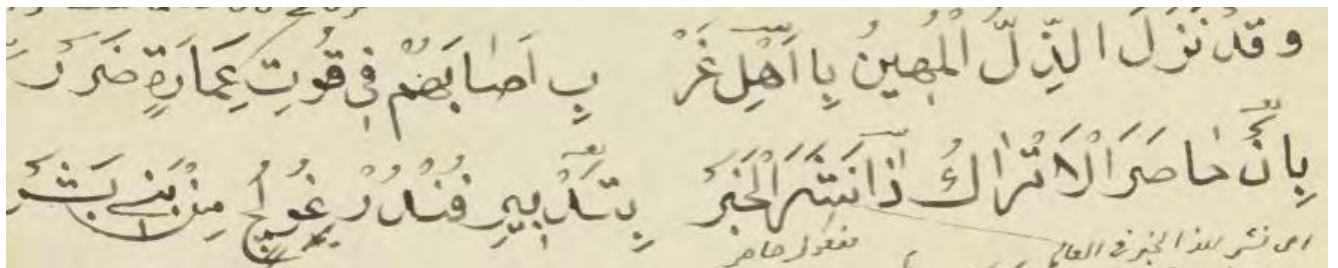 وقد نزل الذل المهين با اهل غر ب اصابهم في قوت عمارة ضرر
بان حاصر الاتراك ذا انتشر الخبر بتدبير فندر غولج من بني بشر
اى نشر هذا الخبر في العالم مفعول حاصر